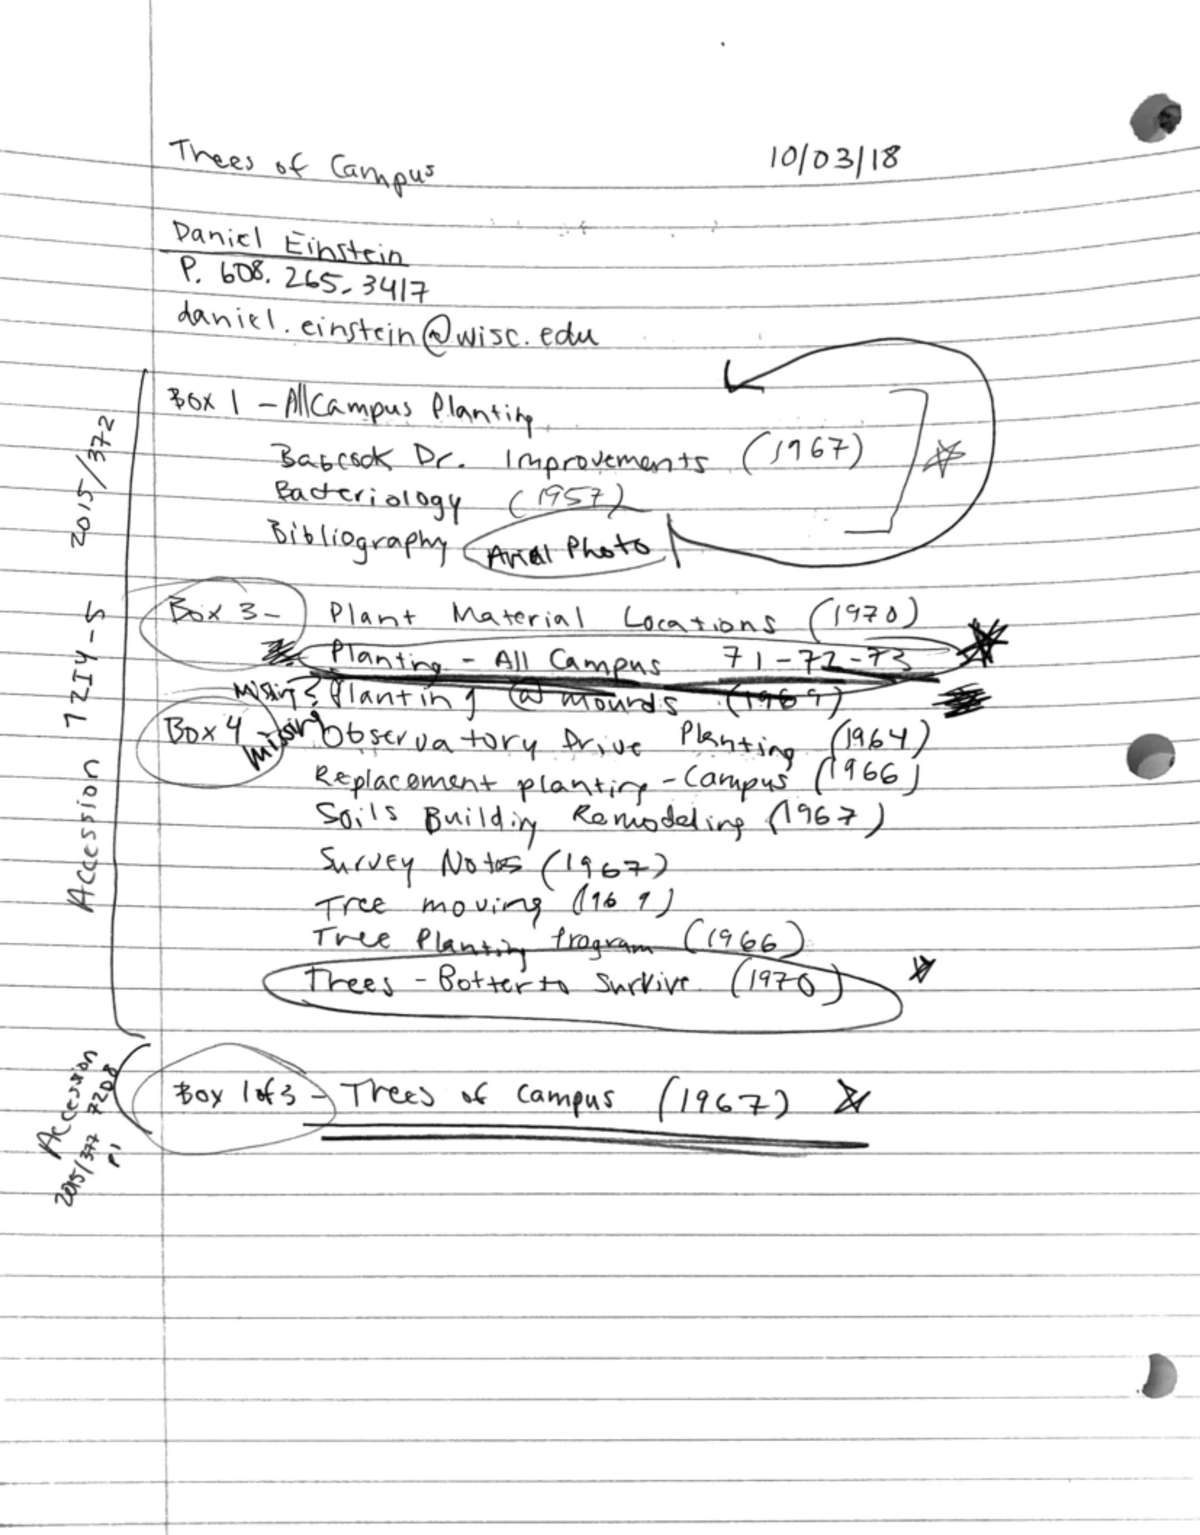 Trees of Campus 10/03/18
Daniel Einstein
P. 608.265.3417
daniel.einstein@wisc.edu
Accession 72I4-5 2015/372
Box 1 - All Campus Planting
Babcock Dr. Improvements (1967)
Bacteriology (1957)
Bibliography Arial Photo
Box 3 - Plant Material Locations (1970)
Planting - All Campus 71-72-73
Missing? Planting @ mounds (1969)
Box 4 missing Observatory Drive Planting (1964)
Replacement planting - Campus (1966)
Soils Building Remodeling (1967)
Survey Notes (1967)
Tree moving (1969)
Tree Planting Program (1966)
Trees - Better to Survive (1970)
Accession
2015/377 7208
P1
Box 1 of 3 - Trees of Campus (1967)